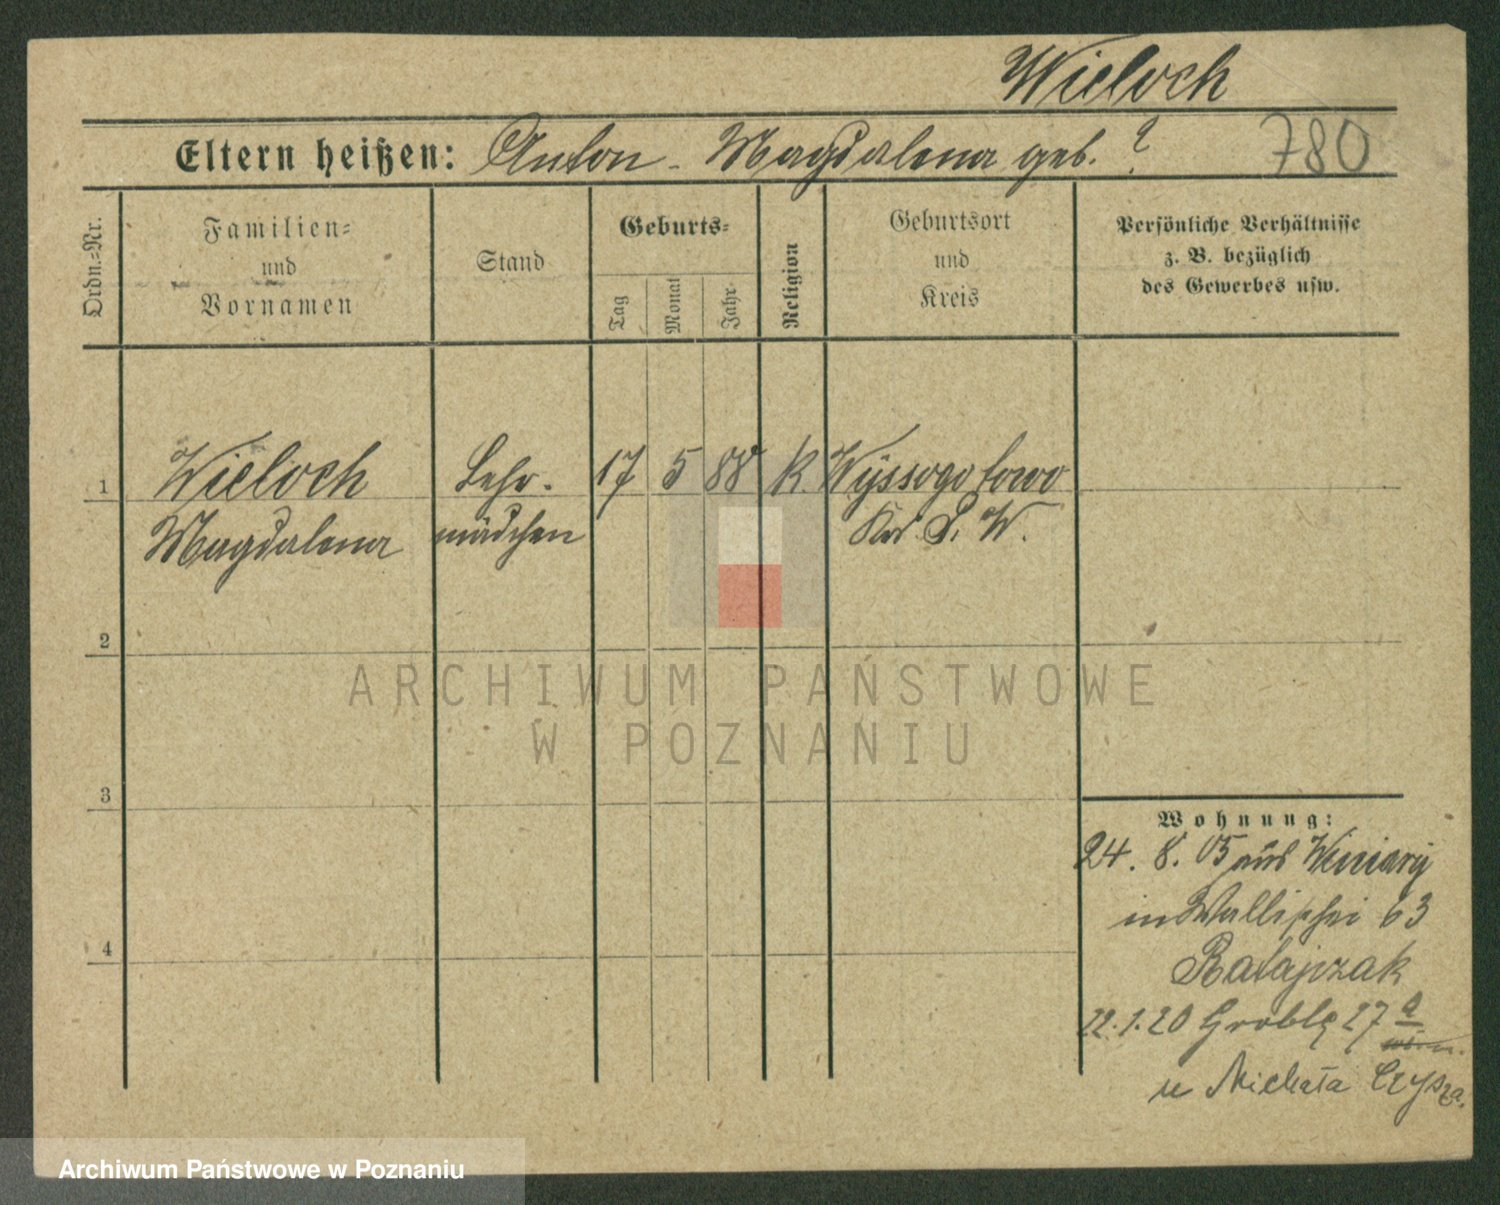 Wieloch
Eltern heißen: Anton - Magdalena geb. ?
780
Ordn.-Nr.
Familien-
und
Vornamen
Stand
Geburts-
Tag
Monat
Jahr
Religion
Geburtsort
und
Kreis
Persönliche Verhältnisse
z. B. bezüglich
des Gewerbes usw.
1
Wieloch
Magdalena
Lehr-
mädchen
17
5
88
K.
Wyssogotowo
Kr. P. W.
2
3
4
ARCHIWUM PAŃSTWOWE
W POZNANIU
Wohnung:
24. 8. 05 aus Winiary
in Wallischei 63
Ratajczak
22.1.20 Groble 27 a
u Michała
Archiwum Państwowe w Poznaniu